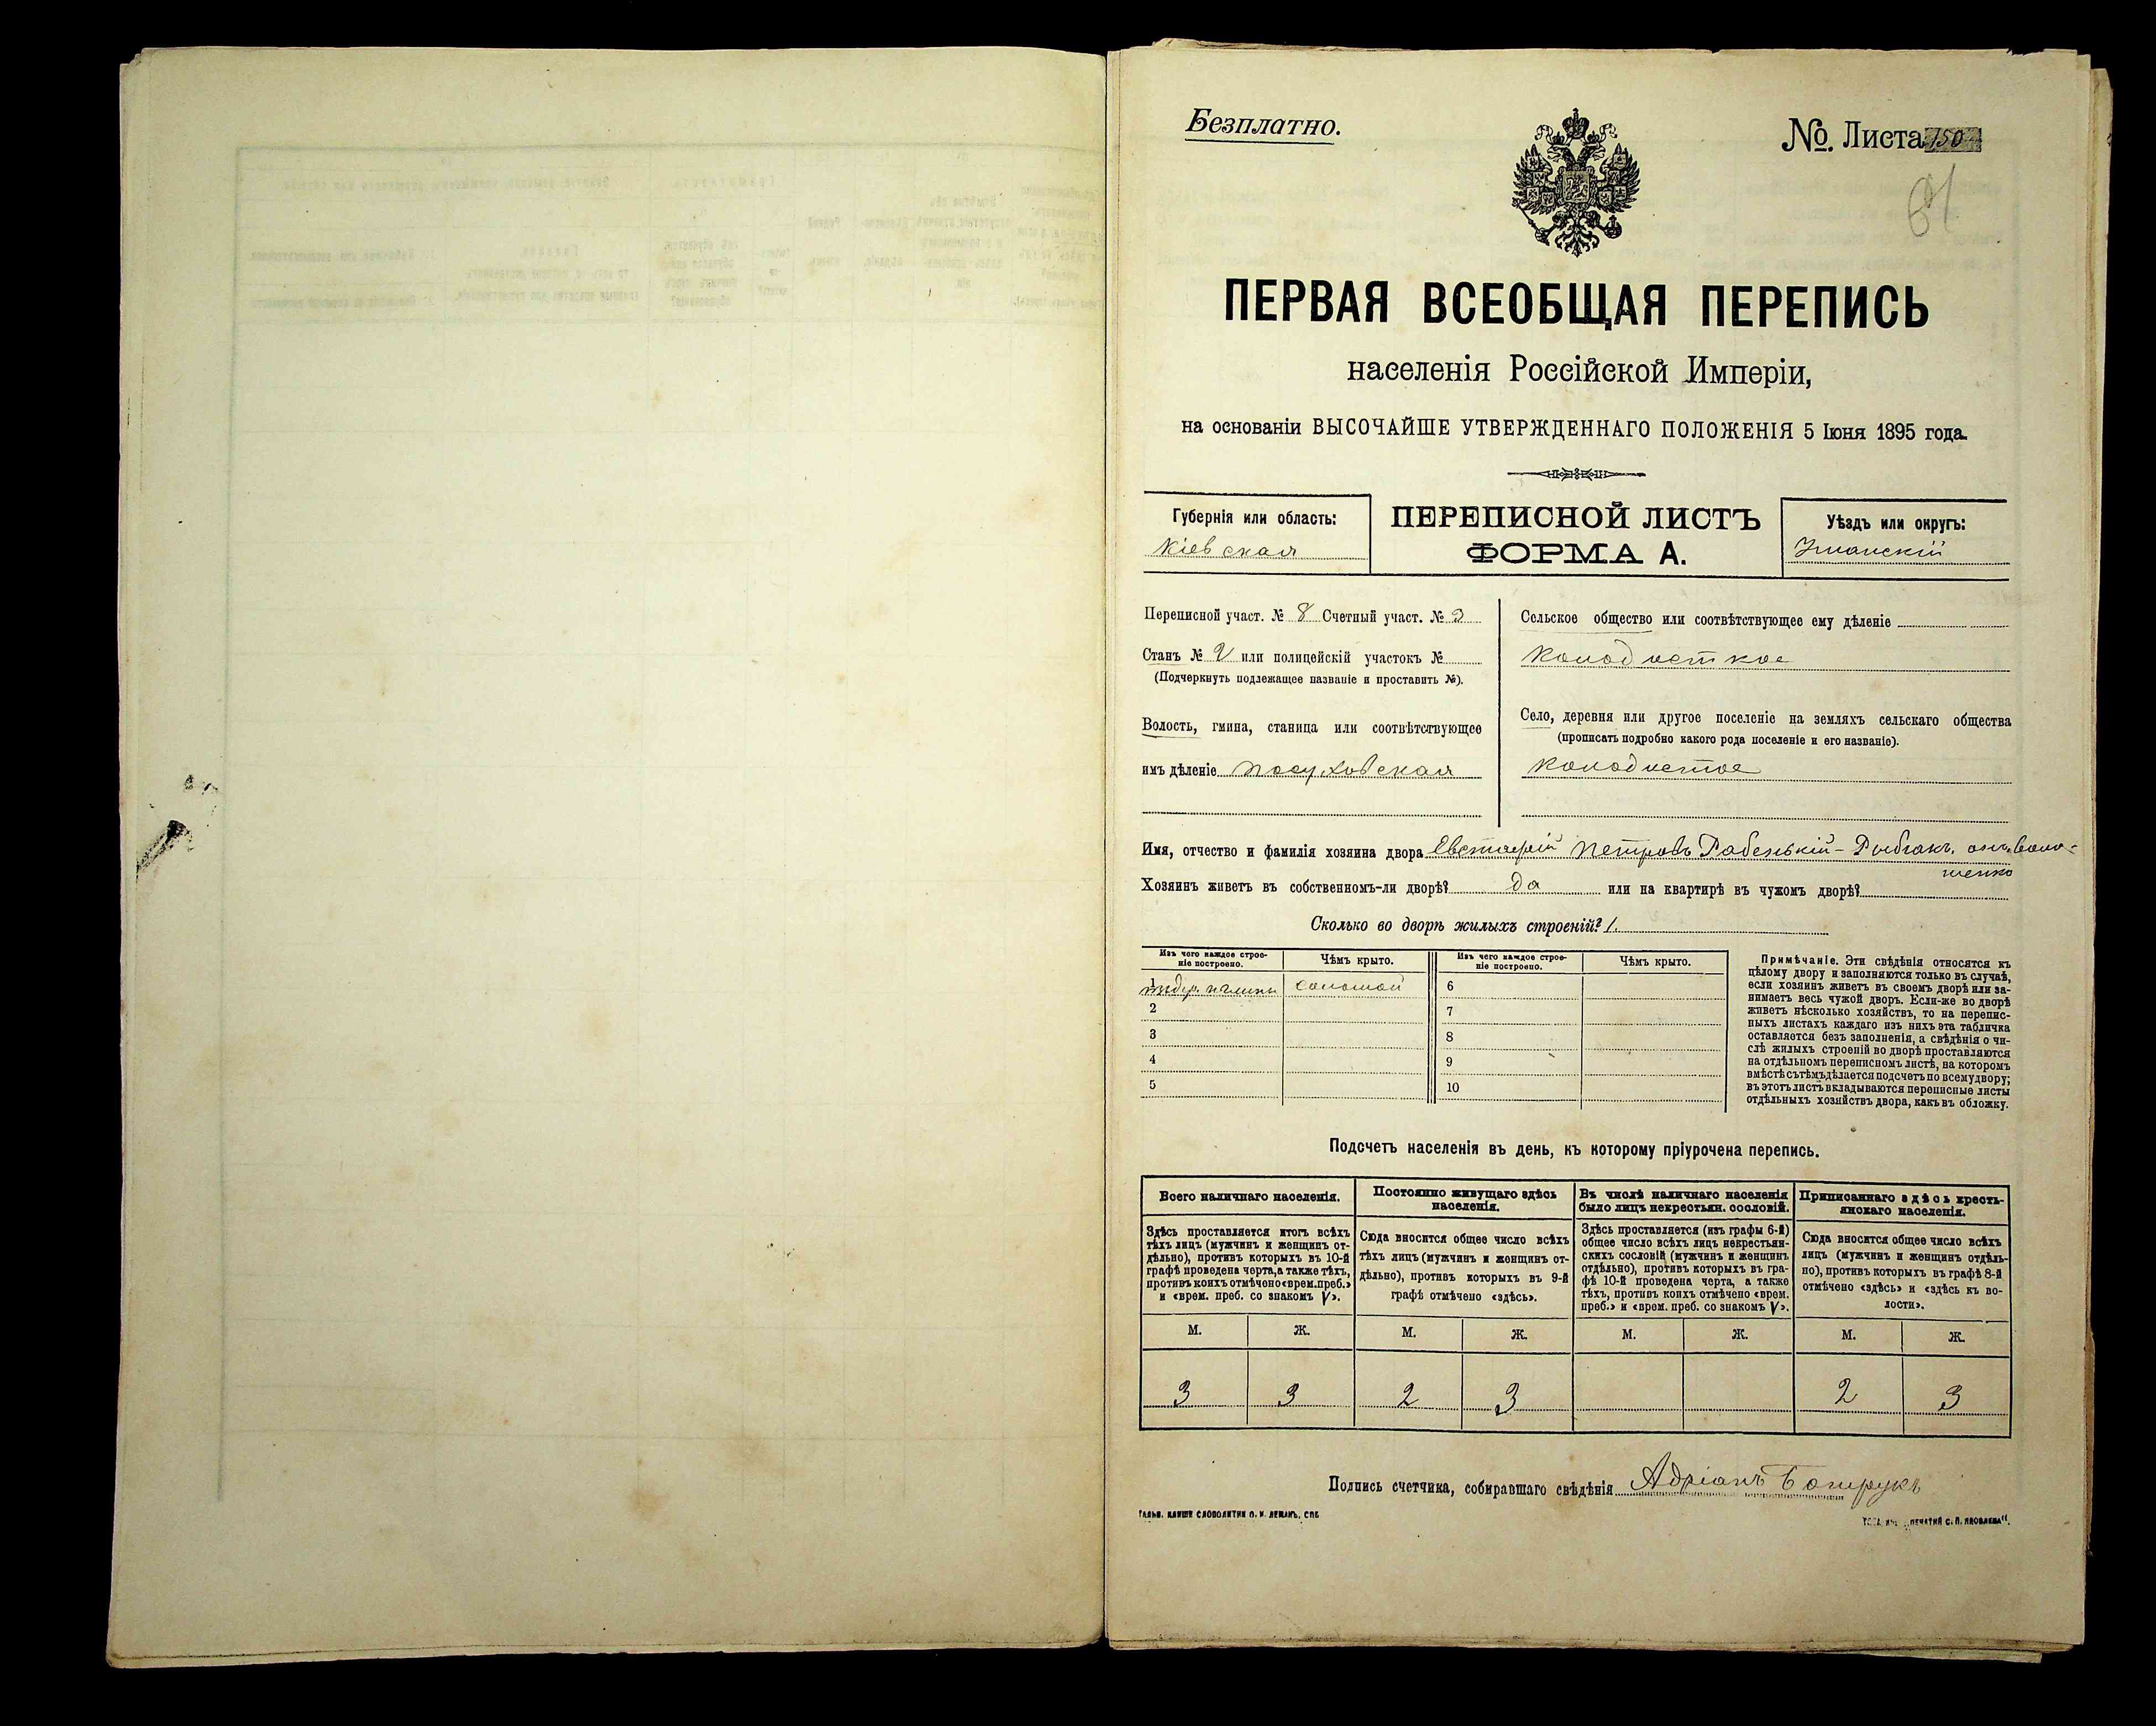 Безплатно.
№. Листа 150
61
ПЕРВАЯ ВСЕОБЩАЯ ПЕРЕПИСЬ
населенія Россійской Имперіи,
на основаніи ВЫСОЧАЙШЕ УТВЕРЖДЕННАГО ПОЛОЖЕНІЯ 5 Іюня 1895 года.
Губернія или область:
Кіевская
ПЕРЕПИСНОЙ ЛИСТЪ
ФОРМА А.
Уѣздъ или округъ:
Уманскій
Переписной участ. № 8 Счетный участ. № 3
Станъ № 2 или полицейскій участокъ №
(Подчеркнуть подлежащее названіе и проставить №).
Волость, гмина, станица или соотвѣтствующее
имъ дѣленіе Посуховская
Сельское общество или соотвѣтствующее ему дѣленіе
Колодисткое
Село, деревня или другое поселеніе на земляхъ сельскаго общества
(прописать подробно какого рода поселеніе и его названіе).
Колодистое
Имя, отчество и фамилія хозяина двора Евстафій Петровъ Рабенькій-
Хозяинъ живетъ въ собственномъ-ли дворѣ? да или на квартирѣ въ чужомъ дворѣ?
Сколько во дворѣ жилыхъ строеній? 1.
Изъ чего каждое строе-
ніе построено.
Чѣмъ крыто.
Изъ чего каждое строе-
ніе построено.
Чѣмъ крыто.
1 глины соломой
6
2
7
3
8
4
9
5
10
Примѣчаніе. Эти свѣдѣнія относятся къ
цѣлому двору и заполняются только въ случаѣ,
если хозяинъ живетъ въ своемъ дворѣ или за-
нимаетъ весь чужой дворъ. Если-же во дворѣ
живетъ нѣсколько хозяйствъ, то на перепис-
ныхъ листахъ каждаго изъ нихъ эта табличка
оставляется безъ заполненія, а свѣдѣнія о чи-
слѣ жилыхъ строеній во дворѣ проставляются
на отдѣльномъ переписномъ листѣ, на которомъ
вмѣстѣ съ тѣмъ дѣлается подсчетъ по всему двору;
въ этотъ листъ вкладываются переписные листы
отдѣльныхъ хозяйствъ двора, какъ въ обложку.
Подсчетъ населенія въ день, къ которому пріурочена перепись.
Всего наличнаго населенія.
Здѣсь проставляется итогъ всѣхъ
тѣхъ лицъ (мужчинъ и женщинъ от-
дѣльно), противъ которыхъ въ 10-й
графѣ проведена черта, а также тѣхъ,
противъ коихъ отмѣчено «врем. преб.»
и «врем. преб. со знакомъ V».
Постоянно живущаго здѣсь
населенія.
Сюда вносится общее число всѣхъ
тѣхъ лицъ (мужчинъ и женщинъ от-
дѣльно), противъ которыхъ въ 9-й
графѣ отмѣчено «здѣсь».
Въ числѣ наличнаго населенія
было лицъ некрестьян. сословій.
Здѣсь проставляется (изъ графы 6-й)
общее число всѣхъ лицъ некрестьян-
скихъ сословій (мужчинъ и женщинъ
отдѣльно), противъ которыхъ въ гра-
фѣ 10-й проведена черта, а также
тѣхъ, противъ коихъ отмѣчено «врем.
преб.» и «врем. преб. со знакомъ V».
Приписаннаго здѣсь кресть-
янскаго населенія.
Сюда вносится общее число всѣхъ
лицъ (мужчинъ и женщинъ отдѣль-
но), противъ которыхъ въ графѣ 8-й
отмѣчено «здѣсь» и «здѣсь къ во-
лости».
М. Ж. М. Ж. М. Ж. М. Ж.
3 3 2 3 2 3
Подпись счетчика, собиравшаго свѣдѣнія Адріанъ
СЛОВОЛИТНИ О. И. ЛЕМАНЪ, СПБ
ПЕЧАТНИ С. П. ЯКОВЛЕВА".